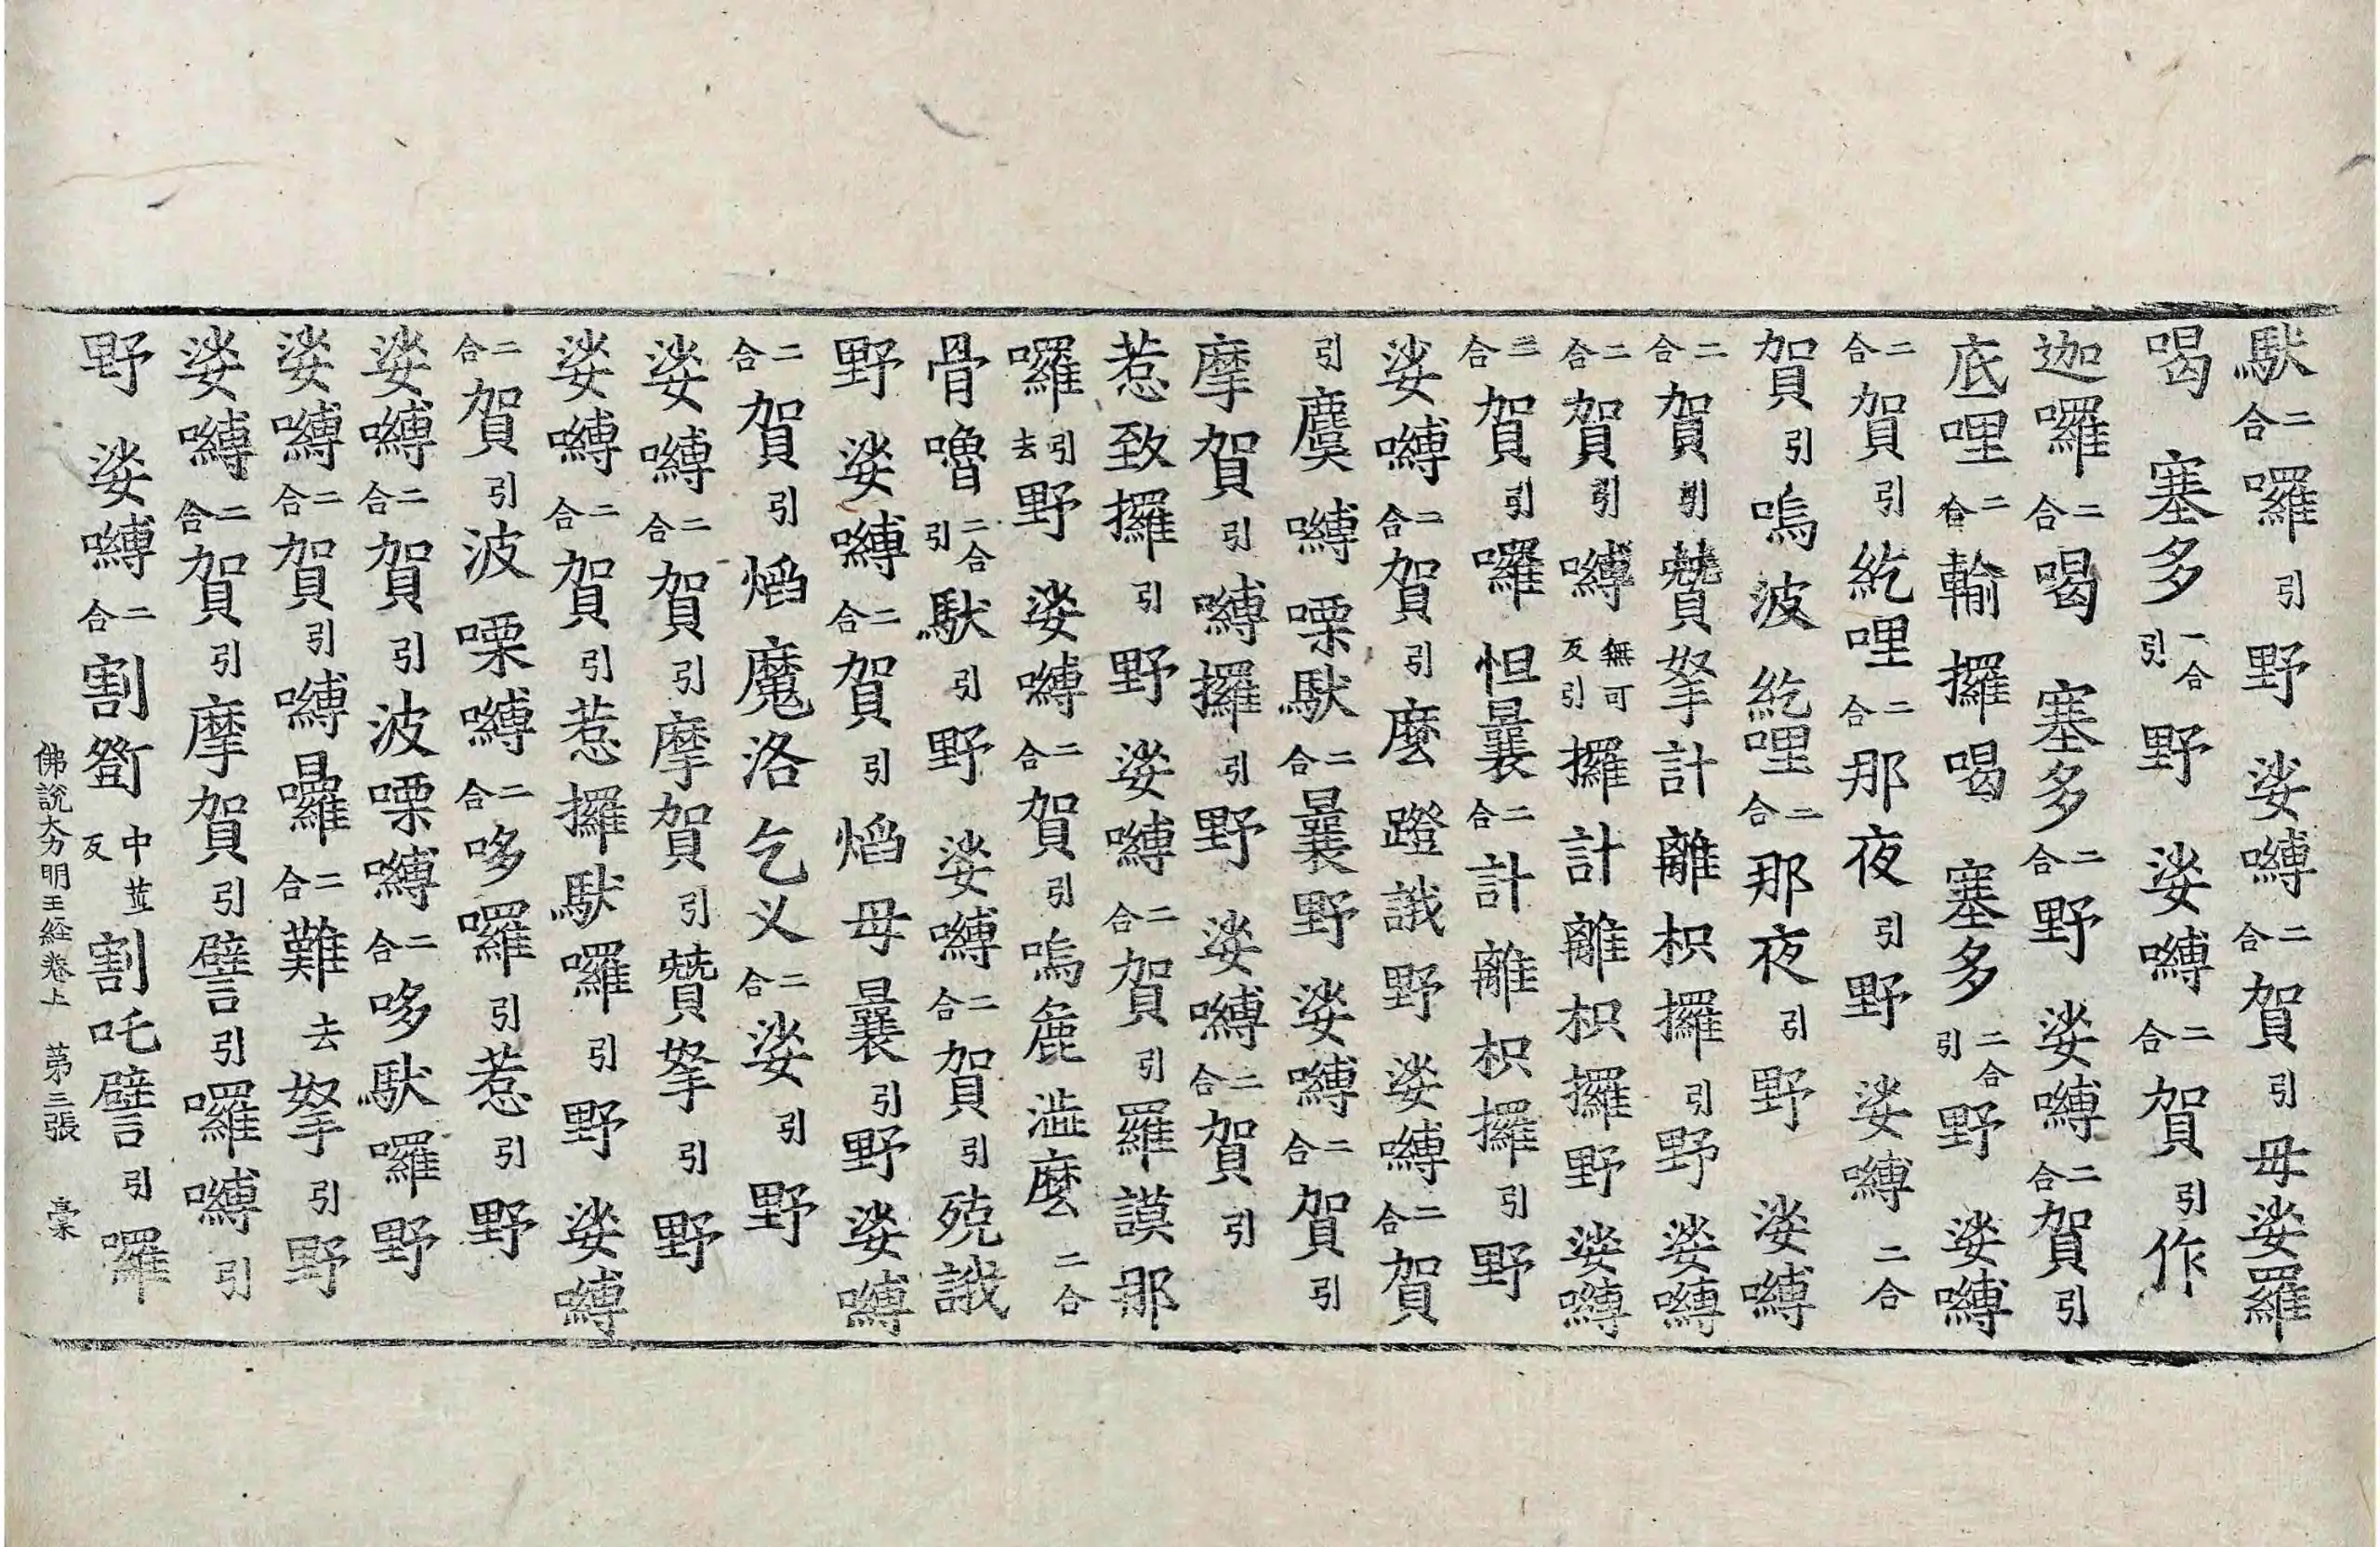 馱二合囉引野娑嚩二合賀引母娑羅
喝塞多二合引野娑嚩二合賀引作
迦囉二合喝塞多二合野娑嚩二合賀引
底哩二合輸攞喝塞多二合引野娑嚩
二合賀引紇哩二合那夜引野娑嚩二合
賀引嗚波紇哩二合那夜引野娑嚩
二合賀引贊拏計離枳攞引野娑嚩
二合賀引嚩無可反引攞計離枳攞野娑嚩
二合賀引囉怛曩二合計離枳攞引野
娑嚩二合賀引麼蹬誐野娑嚩二合賀
引麌嚩㗚馱二合曩野娑嚩二合賀引
摩賀引嚩攞引野娑嚩二合賀引
惹致攞引野娑嚩二合賀引羅謨那
囉引去野娑嚩二合賀引嗚麁澁麼二合
骨嚕二合引馱引野娑嚩二合賀引殑誐
野娑嚩二合賀引焰母曩引野娑嚩
二合賀引焰魔洛乞义二合娑引野
娑嚩二合賀引摩賀引贊拏引野
娑嚩二合賀引惹攞馱囉引野娑嚩
二合賀引波㗚嚩二合哆囉引惹引野
娑嚩二合賀引波㗚嚩二合哆馱囉野
娑嚩二合賀引嚩囉二合難去拏引野
娑嚩二合賀引摩賀引譬引囉嚩引
野娑嚩二合割中反割吒譬引囉
佛說大力明王経卷上 第三張 槀